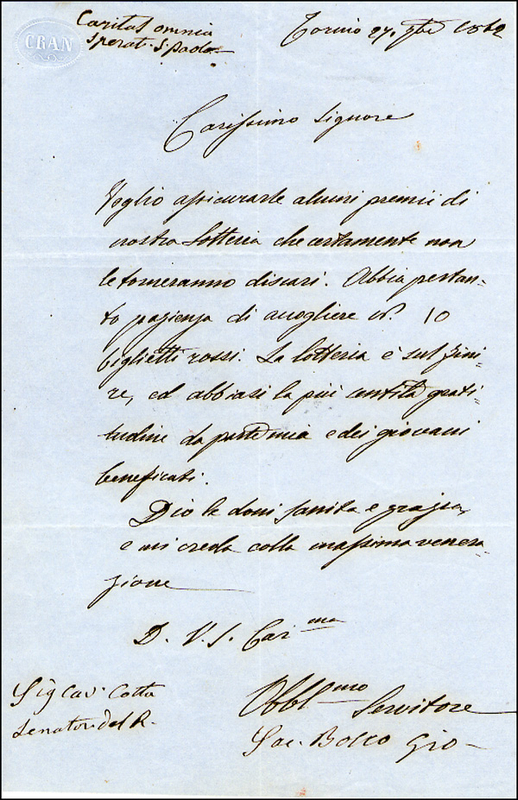 CRAN
Caritas omnia
sperat. S. Paolo
Torino 27, 9bre 1862
Carissimo Signore
Voglio assicurarle alcuni premii di
nostra Lotteria che certamente non
le torneranno discari. Abbia pertan-
to pazienza di accogliere n°. 10
biglietti rossi. La lotteria è sul fini-
re, ed abbiasi la più sentita grati-
tudine da parte mia e dei giovani
beneficati.
Dio le doni sanità e grazia,
e mi creda colla massima venera
zione
D. V. S. Car.ma
Sig Cav. Cotta
Senatore del R.
Obbl.mo Servitore
Sac. Bosco Gio